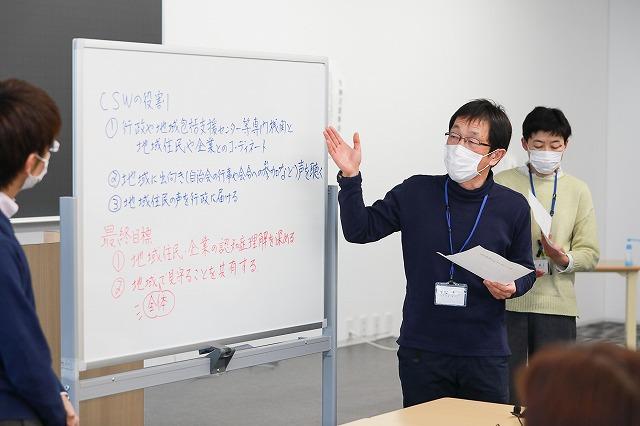 CSWの役割
①行政や地域包括支援センター等専門機関と
地域住民や企業とのコーディネート
②地域に出向き(自治会の行事や会合への参加など)声を聴く
③地域住民の声を行政に届ける
最終目標
①地域住民、企業の認知症理解を深める
②地域で見守ることを共有する
全体